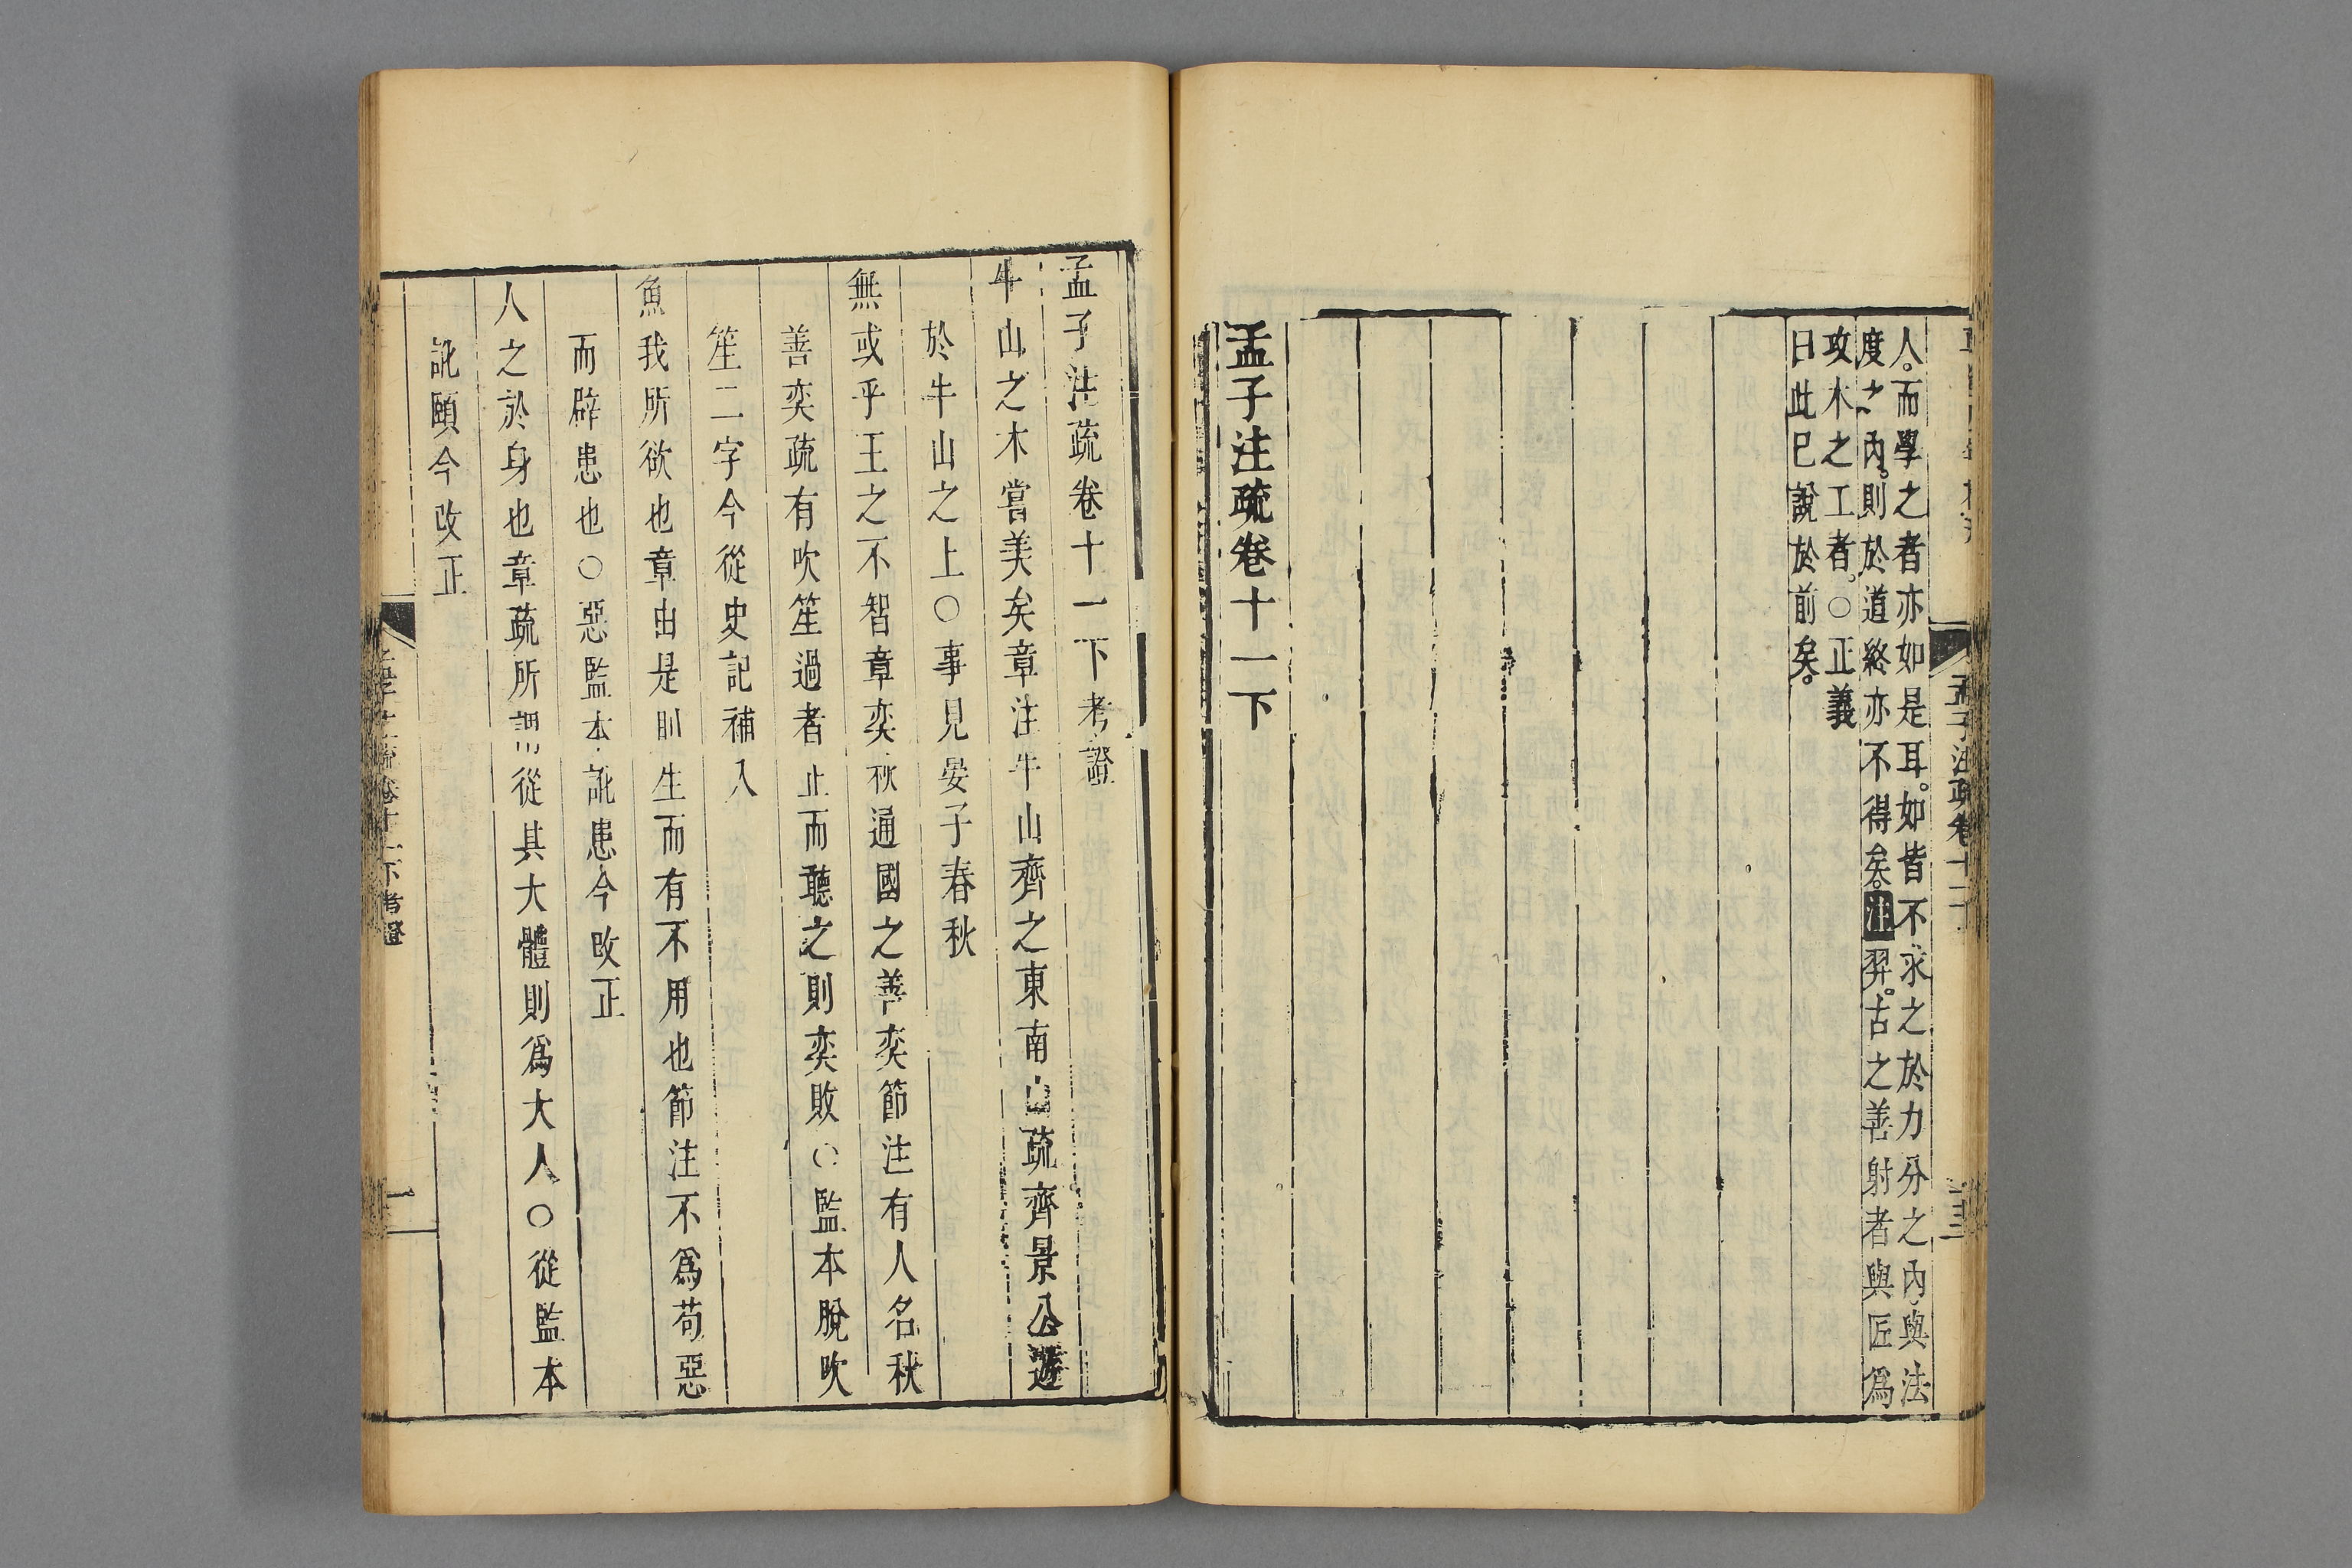 孟子注疏卷十一下
人。而學之者亦如是耳。如皆不求之於力分之內。與法
度之內。則於道終亦不得矣。注羿。古之善射者與匠爲
攻木之工者。○正義
曰此巳說於前矣。
孟子注疏卷十一下
孟子注疏卷十一下考證
牛山之木嘗美矣章注牛山齊之東南山疏齊景公遊
於牛山之上○事見晏子春秋
無或乎王之不智章奕秋通國之善奕節注有人名秋
善奕疏有吹笙過者止而聽之則奕敗○監本脫吹
笙二字今從史記補入
魚我所欲也章由是則生而有不用也節注不爲苟惡
而辟患也○惡監本訛患今改正
人之於身也章疏所謂從其大體則爲大人○從監本
訛頤今改正
孟子注疏卷十一下考證
一